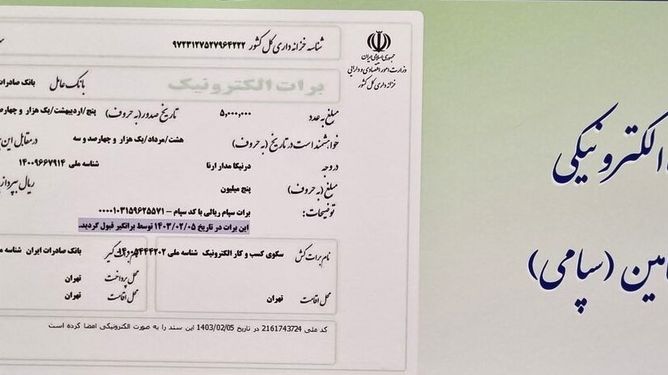 جمهوری اسلامی ایران
وزارت امور اقتصادی و دارایی
خزانه داری کل کشور
شناسه خزانه داری کل کشور ۹۷۲۳۱۲۷۵۲۷۹۶۴۲۲۲
برات الکترونیک
بانک عامل بانک صادرات
مبلغ به عدد ۵,۰۰۰,۰۰۰ تاریخ صدور (به حروف) پنج/اردیبهشت/یک هزار و چهارصد
خواهشمند است در تاریخ (به حروف) هشت/مرداد/یک هزار و چهارصد و سه در مقابل این
در وجه درنیکا مدار ارنا شناسه ملی ۱۴۰۰۹۶۶۷۹۱۴
مبلغ (به حروف) پنج میلیون ریال بپردازید
توضیحات: برات سپام ریالی با کد سپام - ۰۰۰۰۱۰۳۱۵۹۶۲۵۵۷۱
این برات در تاریخ ۱۴۰۳/۰۲/۰۵ توسط براتگیر قبول گردید.
نام برات کش سکوی کسب و کار الکترونیک شناسه ملی
محل اقامت تهران
گیر بانک صادرات ایران شناسه
محل پرداخت تهران
محل اقامت تهران
کد ملی 2161743724 در تاریخ 1403/02/05 این سند را به صورت الکترونیکی امضا کرده است
الکترونیکی
(سپامی)